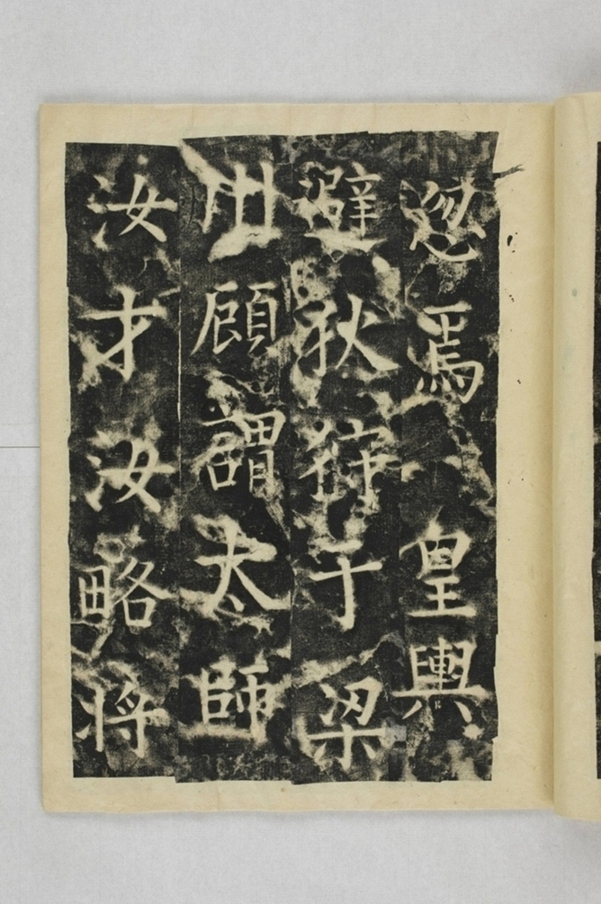 忽焉皇輿
避狄狩于梁
顧謂太師
汝才汝略将